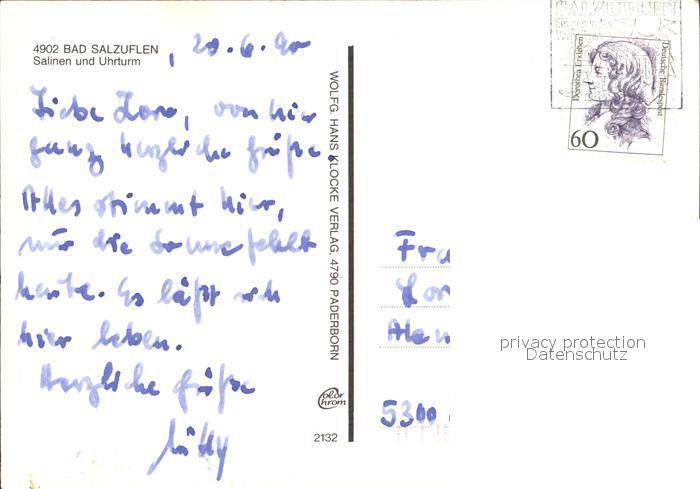 4902 BAD SALZUFLEN
Salinen und Uhrturm
, 20.6.90
Liebe Lore, von hier
ganz herzliche Grüße.
Alles stimmt hier,
nur die Sonne fehlt
heute. Es läßt sich
hier leben.
Herzliche Grüße
WOLFG. HANS KLOCKE VERLAG, 4790 PADERBORN
Color
Chrom
2132
SALZUFLEN
Dorothea Erxleben
Deutsche Bundespost
60
Fra
Lor
5300
privacy protection
Datenschutz